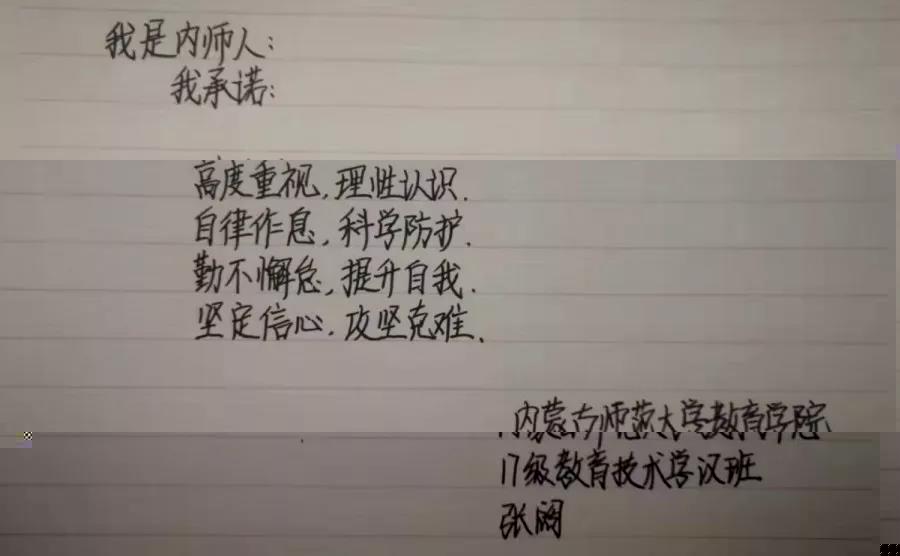 我是内师人：
我承诺：
高度重视，理性认识．
自律作息，科学防护．
勤不懈怠，提升自我．
坚定信心．攻坚克难．
内蒙古师范大学教育学院
17级教育技术学汉班